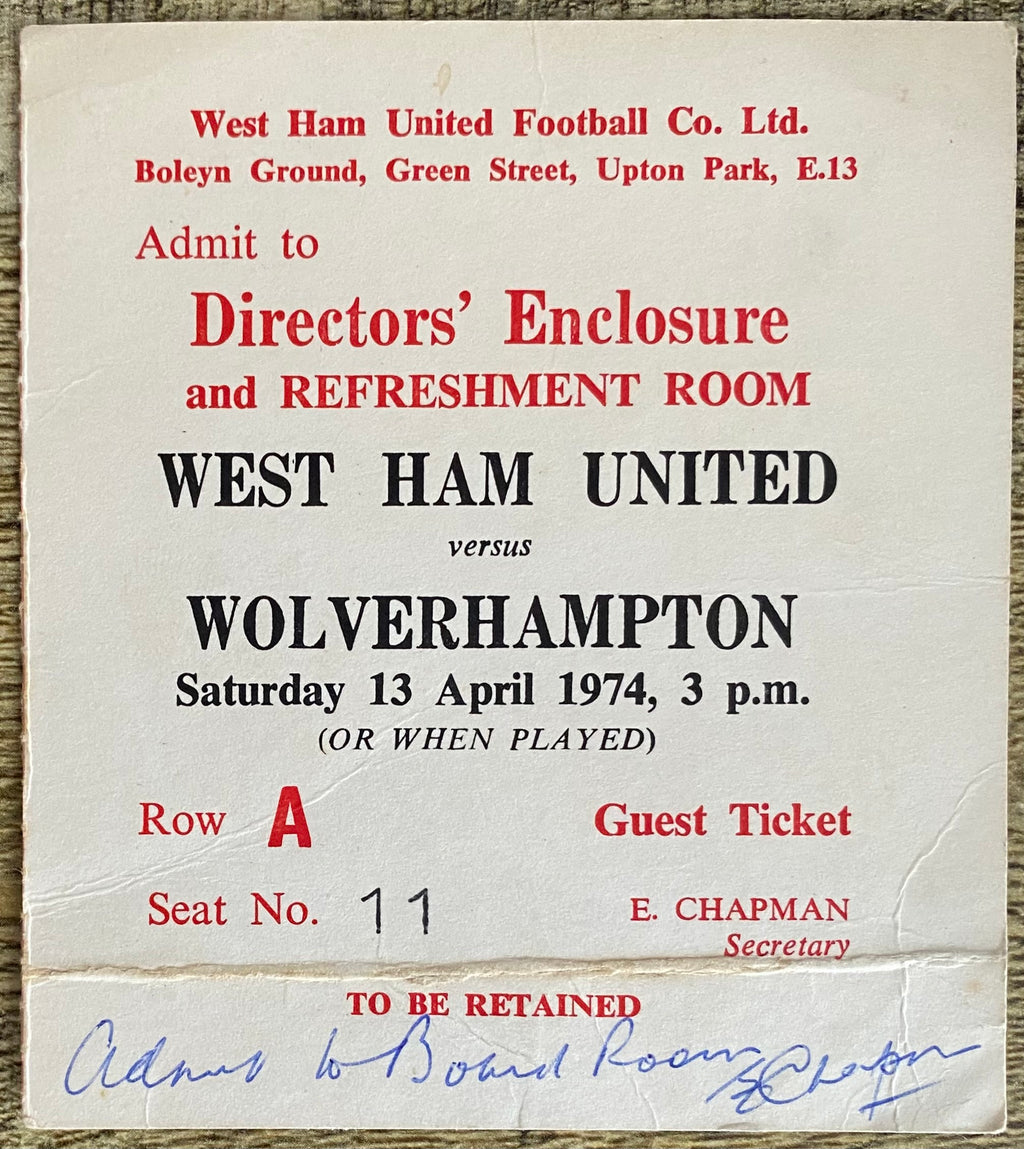 West Ham United Football Co. Ltd.
Boleyn Ground, Green Street, Upton Park, E.13
Admit to
Directors' Enclosure
and REFRESHMENT ROOM
WEST HAM UNITED
versus
WOLVERHAMPTON
Saturday 13 April 1974, 3 p.m.
(OR WHEN PLAYED)
Row A Guest Ticket
Seat No. 11 E. CHAPMAN
Secretary
TO BE RETAINED
Admit to Board Room E Chapman